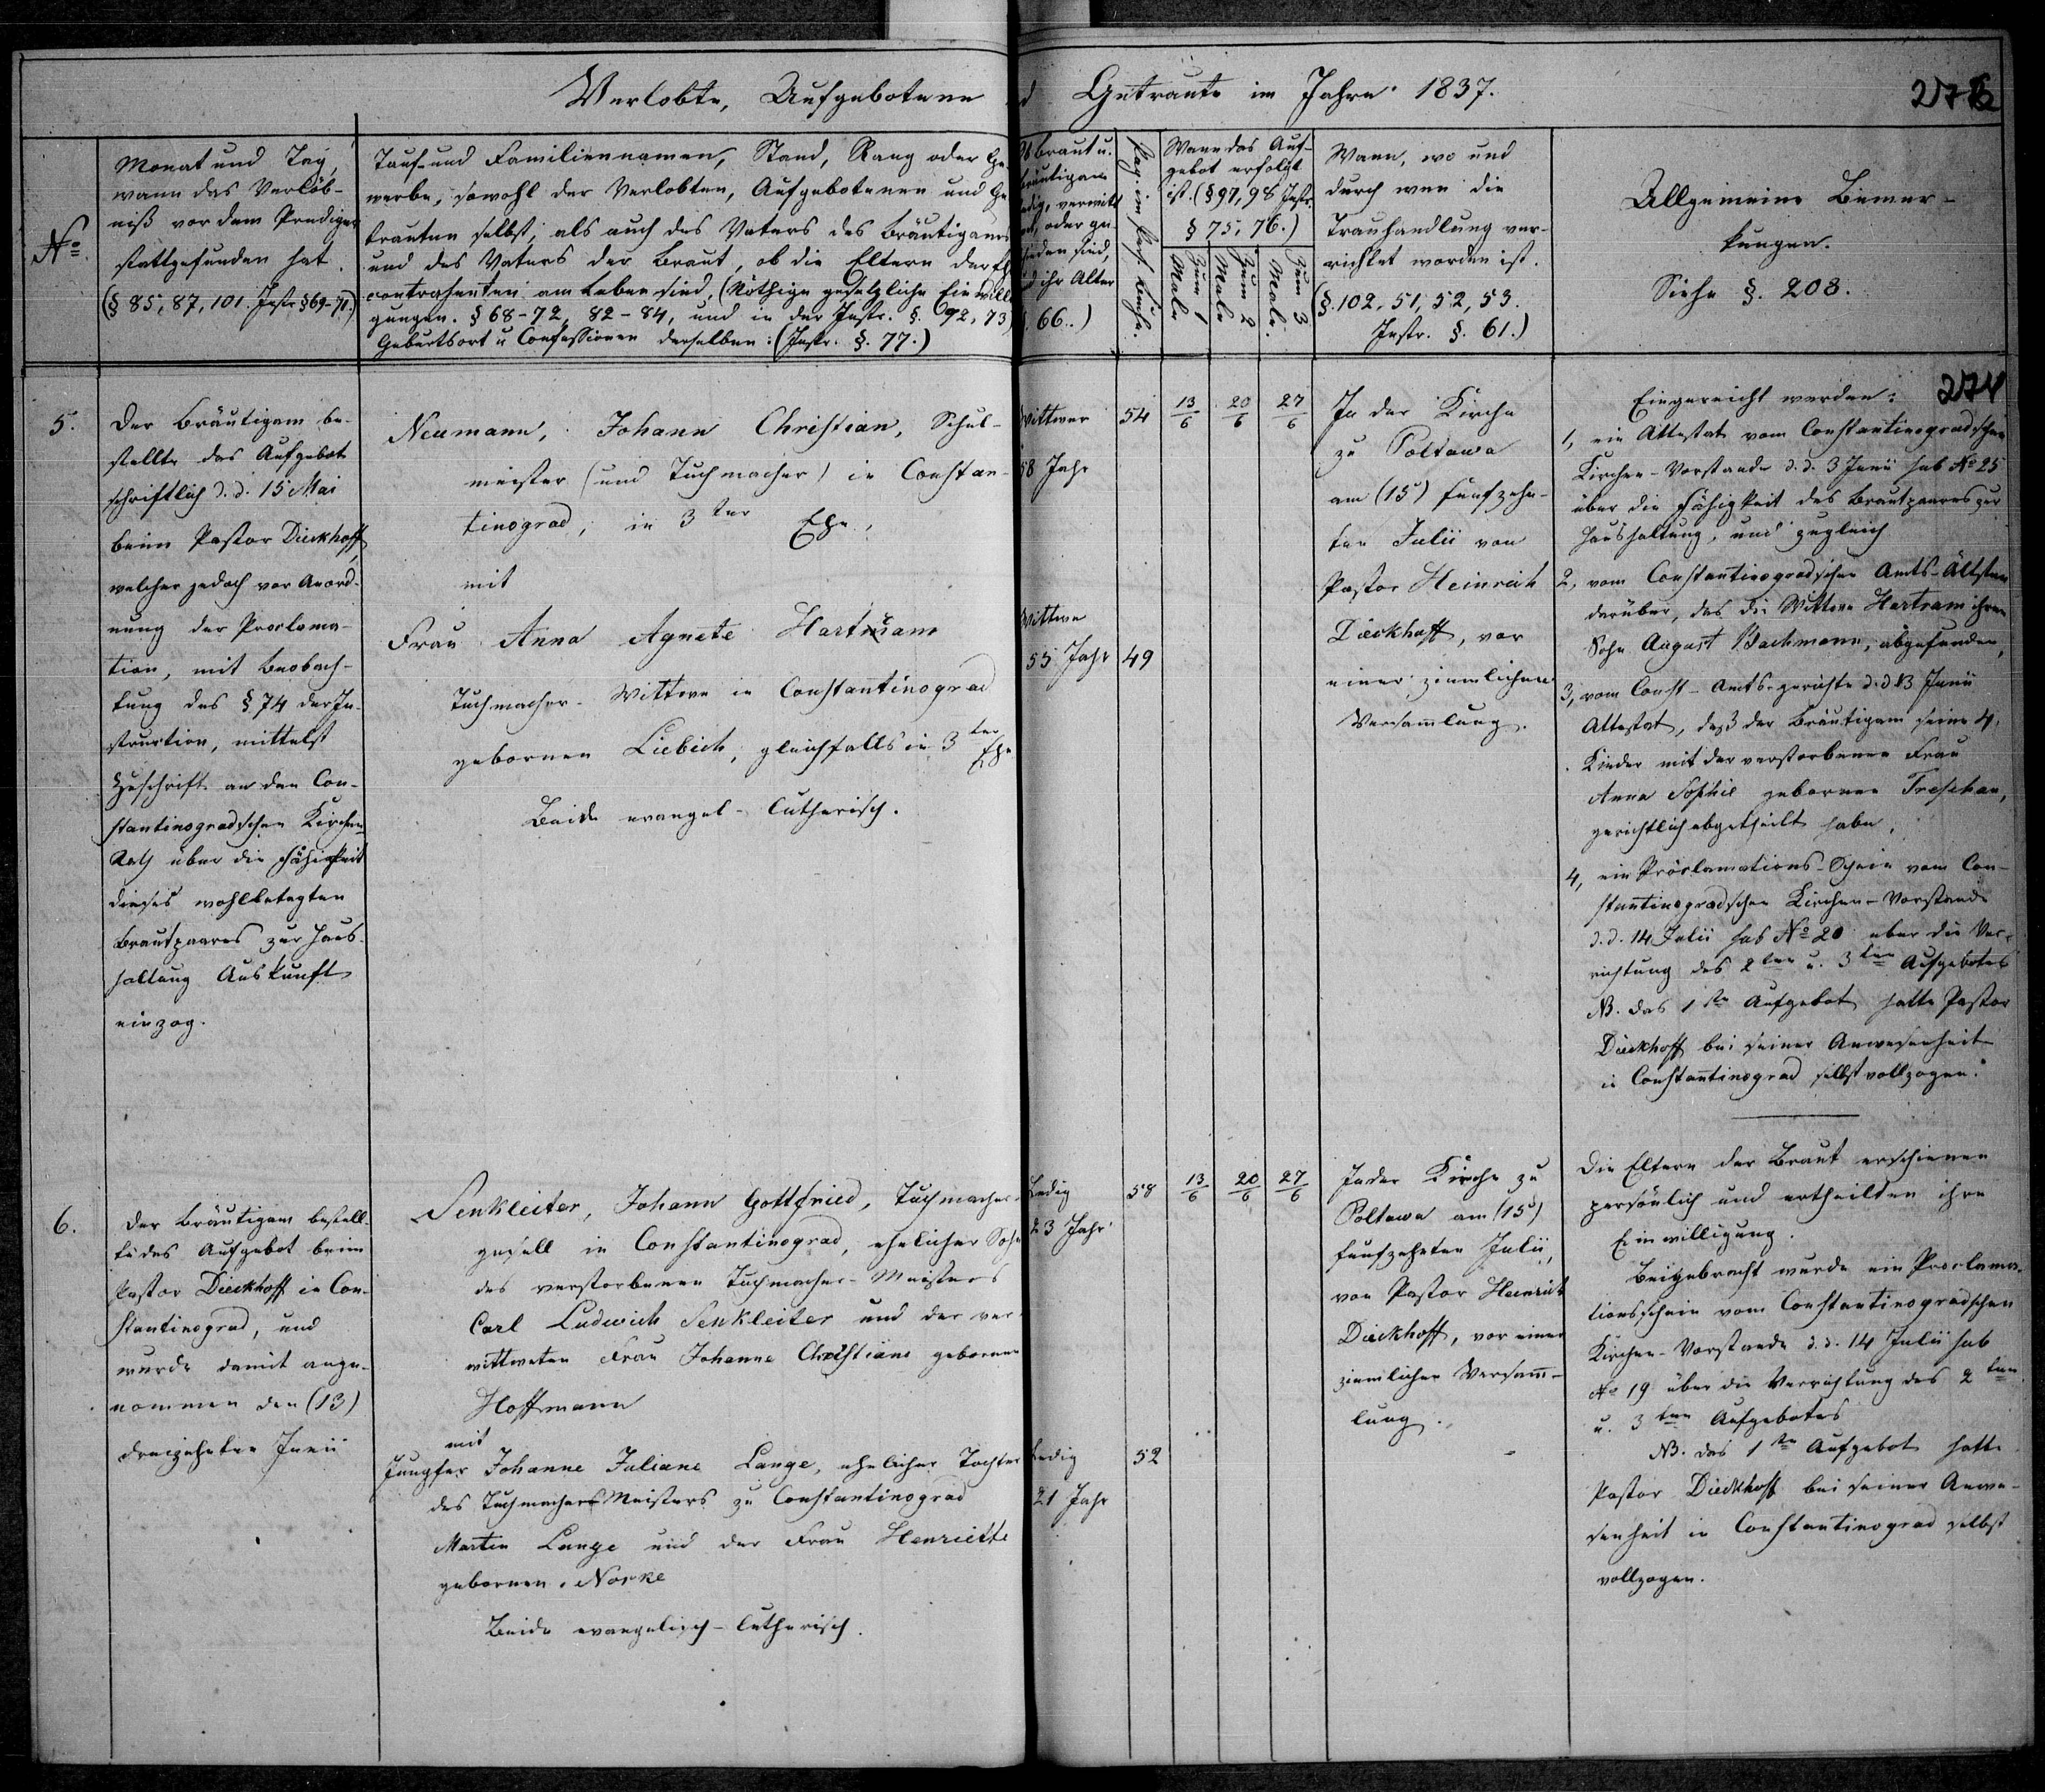 Verlobte, Aufgebotene
d Getraute im Jahre 1837.
No
Monat und Tag,
wann das Verlöb-
niß vor dem Prediger
stattgefunden hat.
(§ 85, 87, 101. Instr § 69-71.)
Tauf- und Familiennamen, Stand, Rang oder Ge-
werbe, sowohl der Verlobten, Aufgebotenen und Ge-
trauten selbst, als auch des Vaters des Bräutigams
und des Vaters der Braut, ob die Eltern der Eh
contrahenten am Leben sind, (Nöthige gesetzliche Einwilli
gungen. § 68-72, 82-84, und in der Instr. §. 72, 73)
Geburtsort u Confessionen derselben: (Instr. §. 77.)
Ob Braut u.
Bräutigam
ledig, verwitt
wet, oder ge
schieden sind,
und ihr Alter
§. 66.)
Pag. im Pers. Buche.
Wann das Auf-
gebot erfolgt
ist. (§ 97, 98 Instr.
§ 75, 76.)
Zum 1 Male
Zum 2 Male
Zum 3 Male.
Wann, wo und
durch wen die
Trauhandlung ver-
richtet worden ist.
(§. 102, 51, 52, 53.
Instr. §. 61.)
Allgemeine Bemer-
kungen.
Siehe §. 208.
5.
Der Bräutigam be-
stellte das Aufgebot
schriftlich d. d. 15 Mai
beim Pastor Dieckhoff,
welcher jedoch vor Anord-
nung der Proclama-
tion, mit Beobach-
tung des § 74 der In-
struction, mittelst
Zuschrift an den Con-
stantinogradschen Kirchen
Rath über die Fähigkeit
dieses wohlbetagten
Brautpaares zur Haus-
haltung Auskunft
einzog.
Neumann, Johann Christian, Schul-
meister (und Tuchmacher) in Constan-
tinograd, in 3ter Ehe,
mit
Frau Anna Agnete Hartram
Tuchmacher-Wittwe in Constantinograd
gebornen Liebich, gleichfalls in 3ter Ehe
Beide evangel-lutherisch.
Wittwer
58 Jahr
Wittwe
55 Jahr
54
49
13/6
20/6
27/6
In der Kirche
zu Poltawa
am (15) funfzehn-
ten Julii von
Pastor Heinrich
Dieckhoff, vor
einer ziemlichen
Versamlung.
Eingereicht worden:
1, ein Attestat vom Constantinogradschen
Kirchen-Vorstande d. d. 3 Junii sub No 25
über die Fähigkeit des Brautpaares zur
Haushaltung, und zugleich
2, vom Constantinogradschen Amts-Ältsten
darüber, das die Wittwe Hartram ihren
Sohn August Bachmann, abgefunden,
3, vom Const-Amts-gerichte d. d 13 Junii
Attestat, daß der Bräutigam seine 4
Kinder mit der verstorbenen Frau
Anna Sophie gebornen Treschau,
gerichtlich abgetheilt habe.
4, ein Proclamations-Schein vom Con-
stantinogradschen Kirchen-Vorstande
d. d. 14 Julii sub No 20 über die Ver-
richtung des 2ten u. 3ten Aufgebotes
NB. das 1te Aufgebot hatte Pastor
Dieckhoff bei seiner Anwesenheit
in Constantinograd selbst vollzogen.
6.
Der Bräutigam bestell-
te das Aufgebot beim
Pastor Dieckhoff in Con-
stantinograd, und
wurde damit ange-
nommen den (13)
dreizehnten Junii
Senkleiter, Johann Gottfried, Tuchmacher-
gesell in Constantinograd, ehelicher Sohn
des verstorbenen Tuchmacher-Meisters
Carl Ludwich Senkleiter und der ver-
wittweten Frau Johanne Christiane gebornen
Hoffmann
mit
Jungfer Johanne Juliane Lange, ehelicher Tochter
des Tuchmacher Meisters zu Constantinograd
Martin Lange und der Frau Henriette
gebornen Norke
Beide evangelisch-lutherisch.
Ledig
23 Jahr
Ledig
21 Jahr
58
52
13/6
20/6
27/6
In der Kirche zu
Poltawa am (15)
funfzehnten Julii,
von Pastor Heinrich
Dieckhoff, vor einer
ziemlichen Versam-
lung.
Die Eltern der Braut erschienen
persönlich und ertheilten ihre
Einwilligung.
Beigebracht wurde ein Proclama-
tionsschein vom Constantinogradschen
Kirchen-Vorstande d. d. 14 Julii sub
No 19 über die Verrichtung des 2ten
u. 3ten Aufgebotes
NB. das 1te Aufgebot hatte
Pastor Dieckhoff bei seiner Anwe-
senheit in Constantinograd selbst
vollzogen.